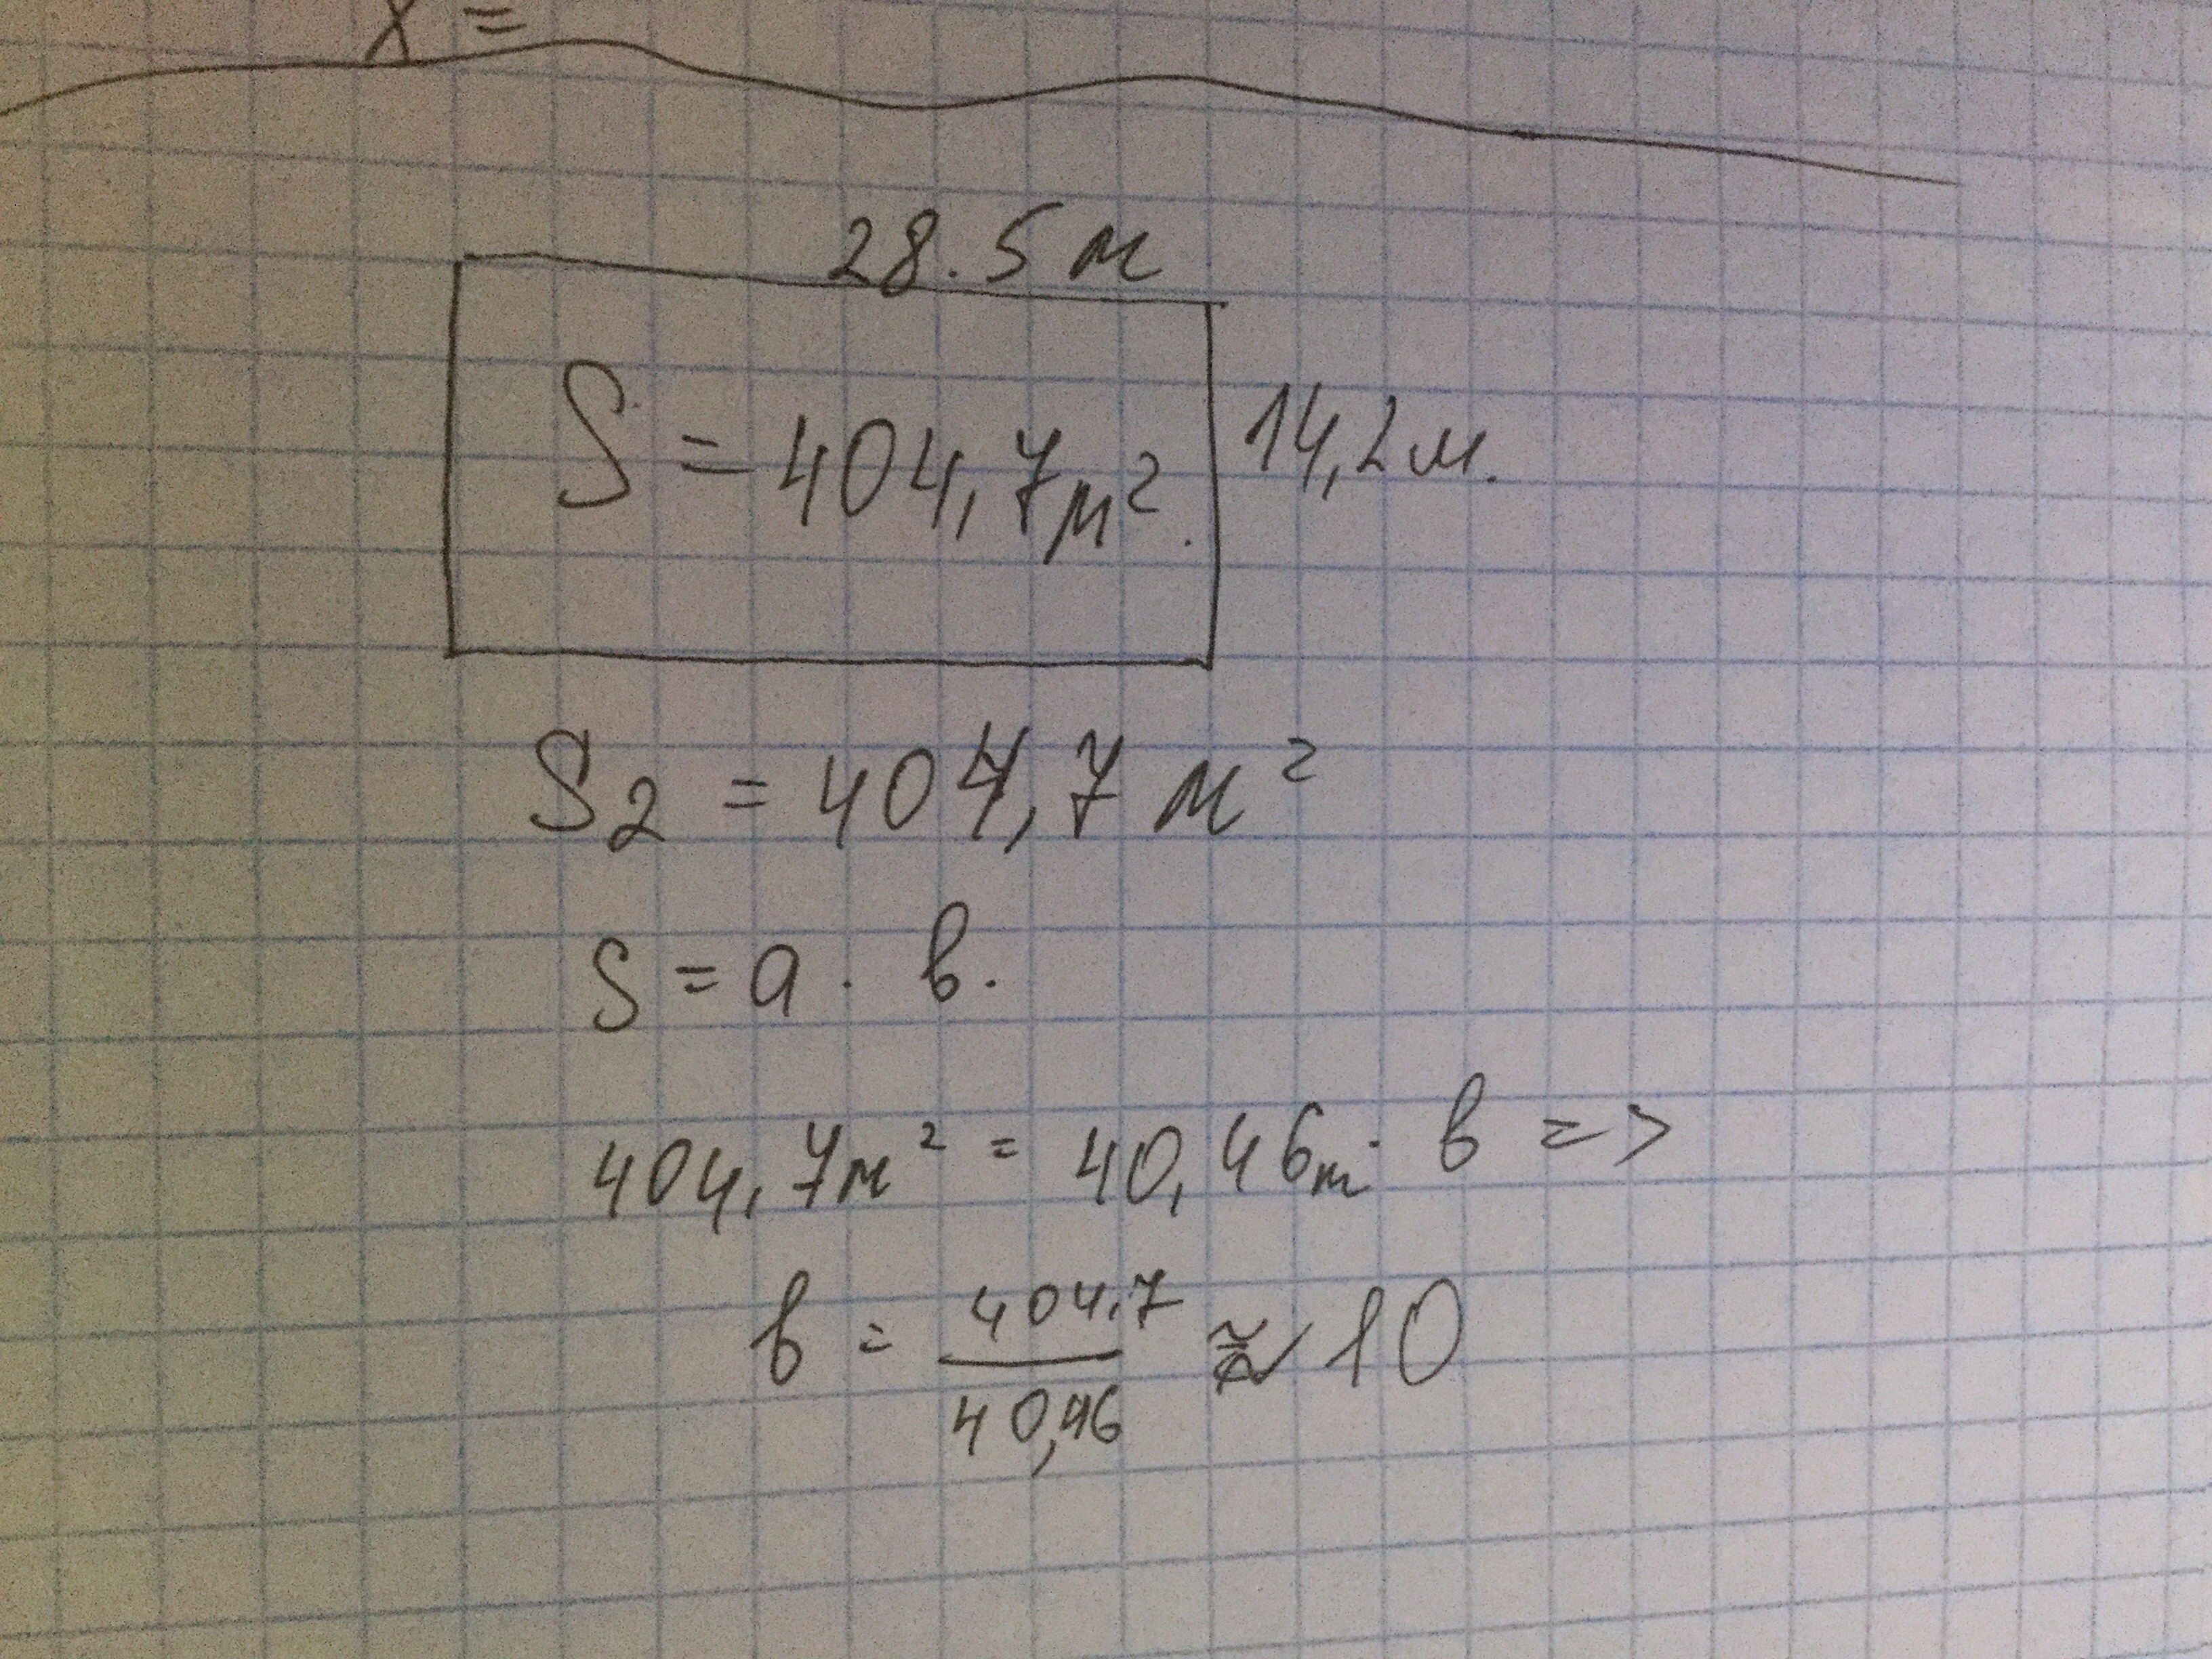 x =
28.5 м
S = 404,7м².
14,2 м.
S₂ = 404,7 м²
S = a · в.
404,7м² = 40,46м · в =>
в = 404,7 / 40,46 ≈ 10